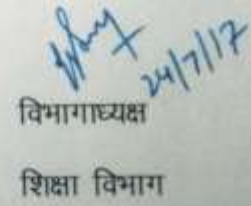 24/7/17
विभागाध्यक्ष
शिक्षा विभाग